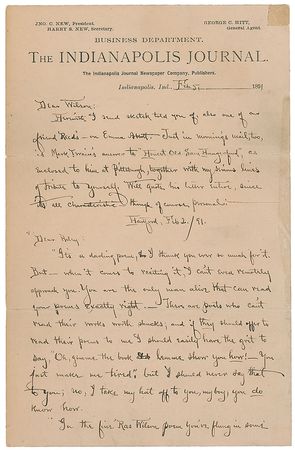 JNO. C. NEW, President.
HARRY S. NEW, Secretary.
GEORGE C. HITT,
General Agent.
BUSINESS DEPARTMENT.
THE INDIANAPOLIS JOURNAL.
The Indianapolis Journal Newspaper Company, Publishers.
Indianapolis, Ind., Feb. 5, 1891
Dear Wilson:
I send sketch told you of also one of our
friend Reed's on
Just in morning's mail, too,
is Mark Twain's answer to "Honest Old Sam Hungerford," as
inclosed to him at Pittsburgh, together with my
tribute to yourself. Will quote his letter entire, since
it's all characteristic though, of course, personal:
Hartford, Feb 2/91.
"Dear Riley:
"It's a darling poem, & I thank you ever so much for it.
But when it comes to reciting it, I can't even remotely
approach you. You are the only man alive that can read
your poems exactly right. There are poets who can't
read their works worth shucks; and if they should offer to
read their poems to me I should easily have the grit to
say, "Oh, gimme the book & lemme show you how! You
just make me tired," but I should never say that
to you; no, I take my hat off to you, my boy; you do
know how.
"In the fine 'Ras Wilson poem you've flung in some